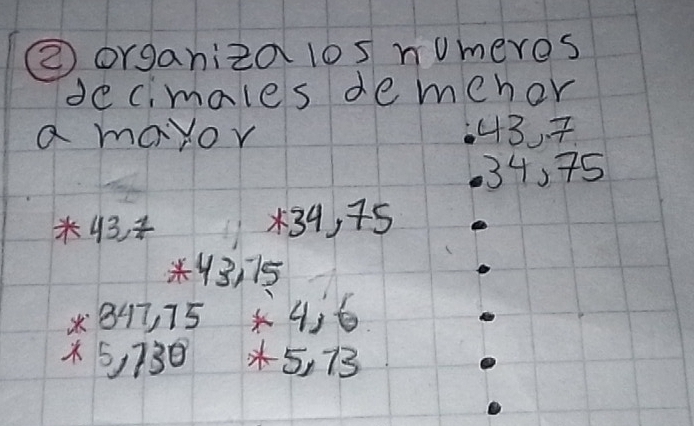 ② organiza los numeros
decimales de menor
a mayor
• 43,7
• 34,75
* 43,7 * 34,75
* 43,75
* 847,75 * 4,6
* 5,730 * 5,73
•
•
•
•
•